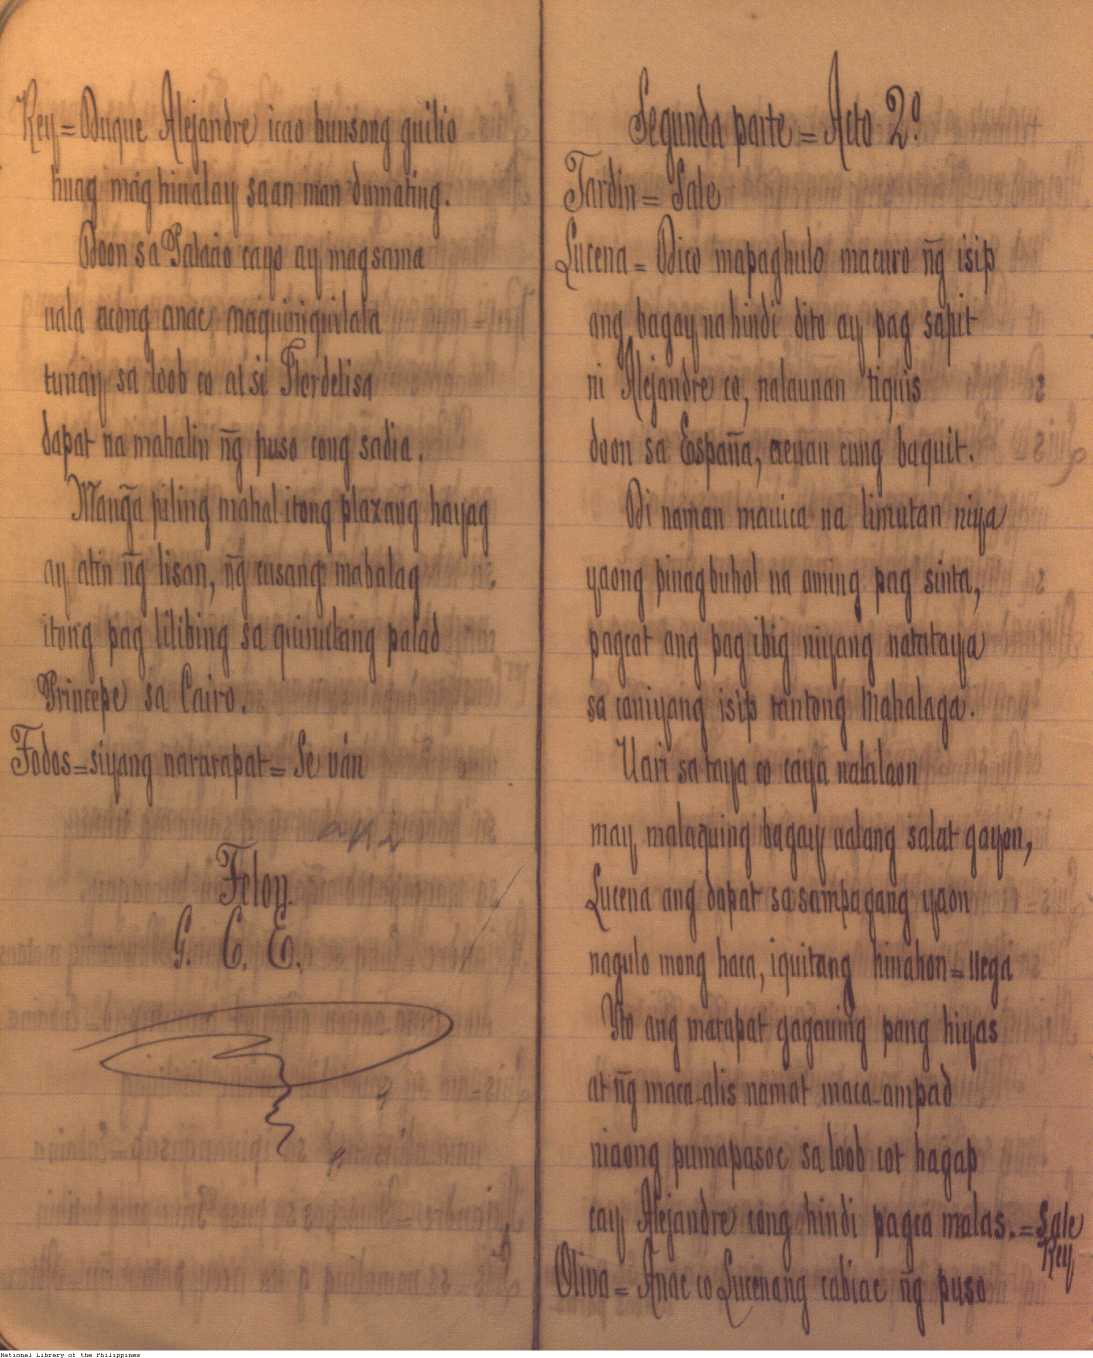 Rey = Duque Alejandre icao bunsong guilio
huag mág hiualay saan man dumating.
Doon sa Palacio cayo ay magsama
uala acong anac maquiquilala
tunay sa loob co at si Flerdelisa
dapat na mahalin ng̃ puso cong sadia.
Mang̃a piling mahal itong plazang hayag
ay atin ng̃ lisan, ng̃ cusang mabalag
itong pag lilibing sa quinulang palad
Principe sa Cairo.
Todos = siyang nararapat = Se ván
Feloy.
G. C. E.
Segunda parte = Acto 2º
Jardin = Sale
Lucena = Dico mapaghulo macuro ng̃ isip
ang bagay na hindi dito ay pag sapit
ni Alejandre co, nalaunan tiquis
doon sa España, aeyuan cung baquit.
Di naman mauica na limutan niya
yaong pinagbuhol na aming pag sinta,
pagcat ang pag ibig niyang natataya
sa caniyang isip tantong Mahalaga.
Uari sa taya co caya natalaon
may malaquing bagay ualang salat gayon,
Lucena ang dapat sa sampagang yaon
nagulo mong haca, iquitang hinahon = llega
Yto ang marapat gagauing pang hiyas
at ng̃ maca-alis namat maca-ampad
niaong pumapasoc sa loob cot hagap
cay Alejandre cong hindi pagca malas. = Sale
Rey
Oliva = Anac co Lucenang cabiac ng̃ puso
National Library of the Philippines